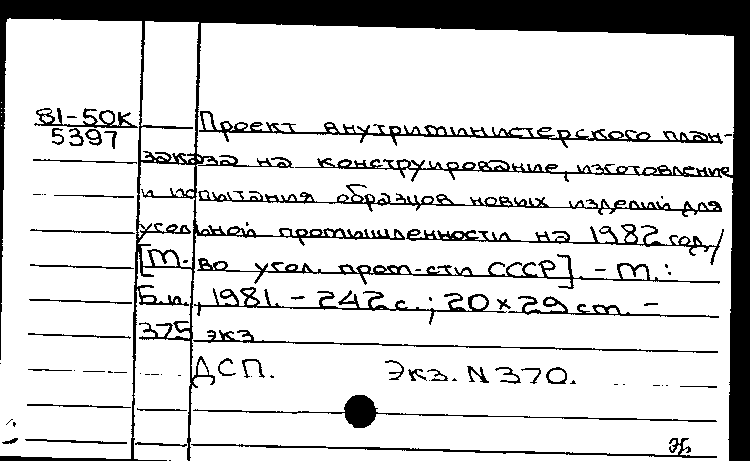 81-50К
5397
Проект внутриминистерского план-
заказа на конструирование, изготовление
и испытания образцов новых изделий для
угольной промышленности на 1982 год /
[М-во угол. пром-сти СССР]. - М.:
Б.и., 1981. - 242 с.; 20 х 29 см. -
375 экз.
ДСП. Экз. N 370.